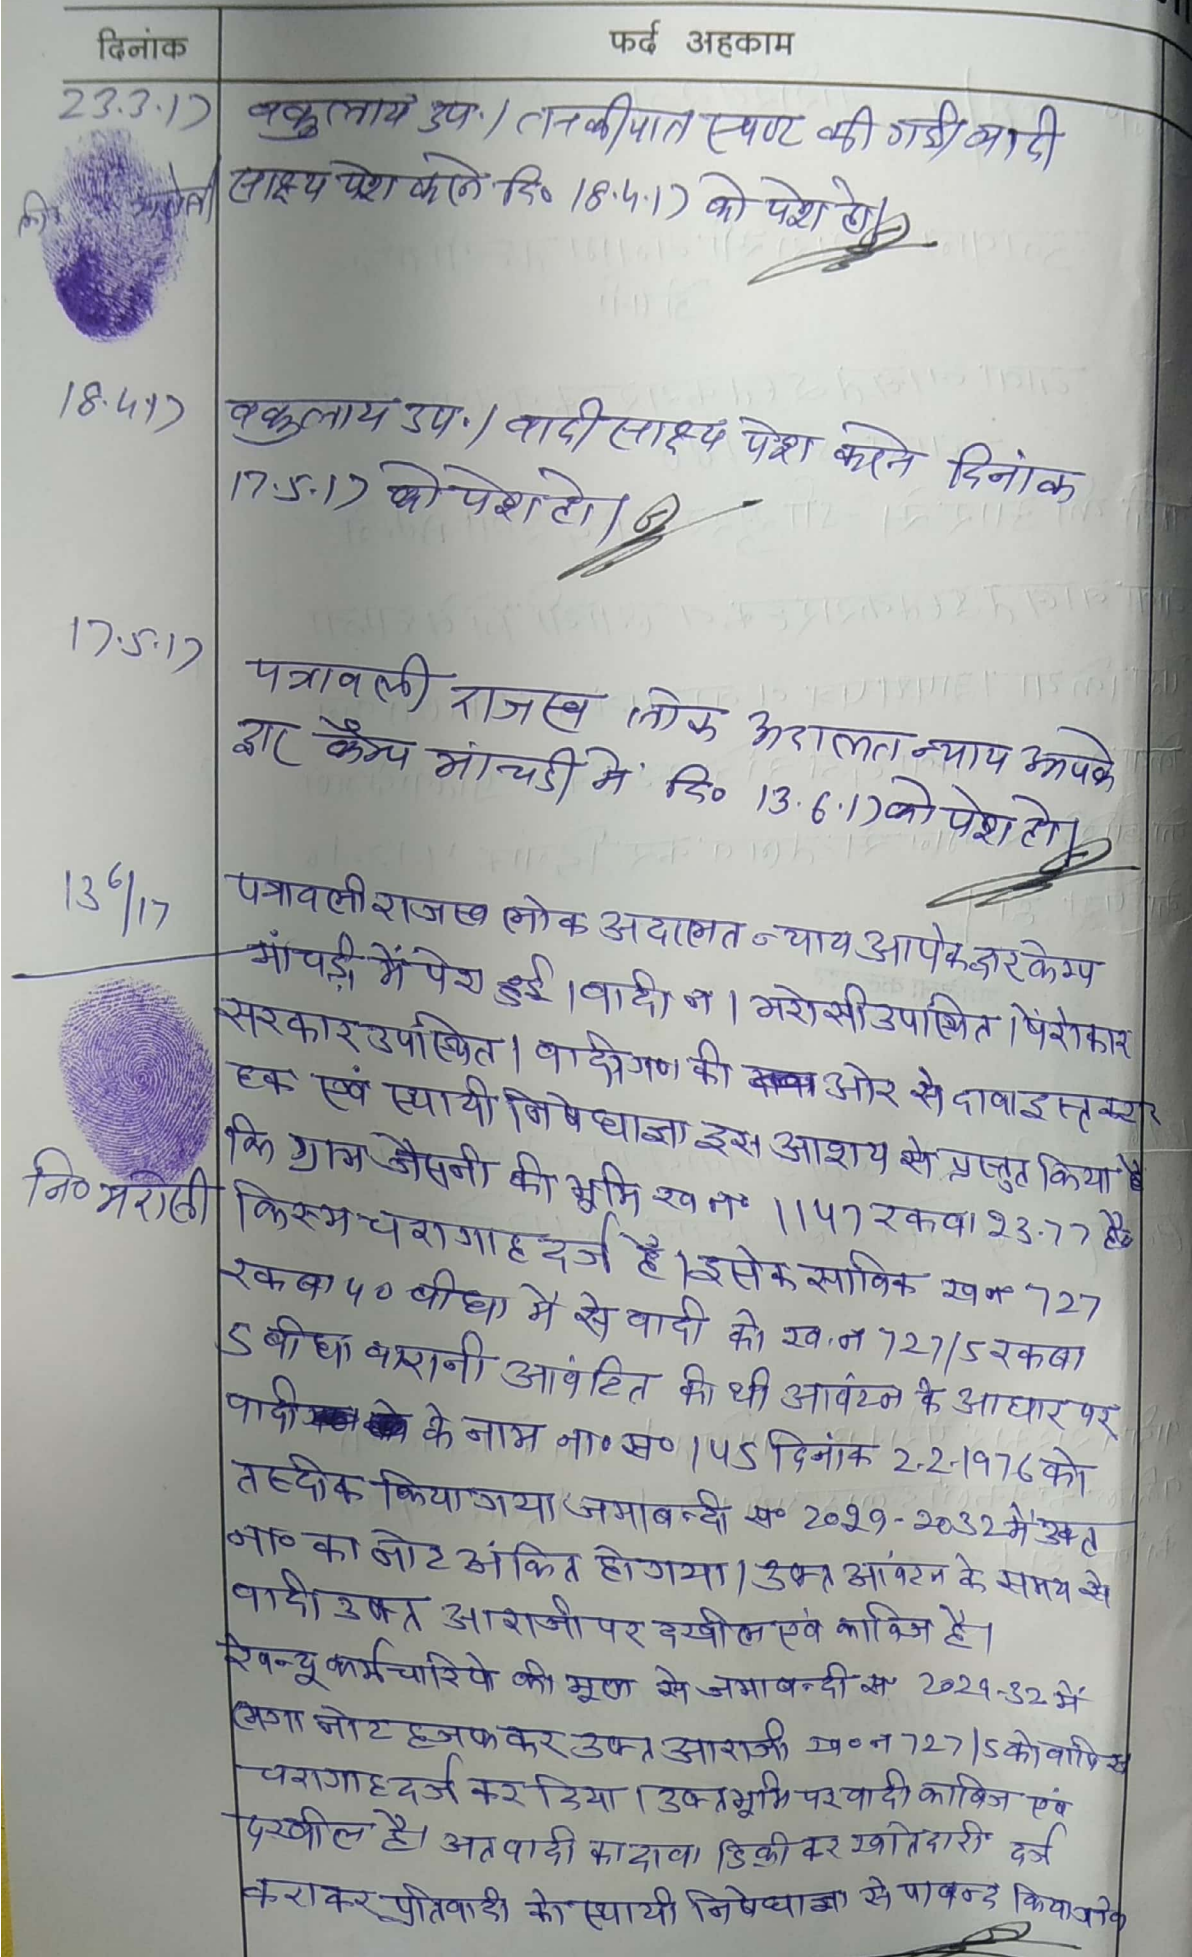 दिनांक
फर्द अहकाम
23.3.17
वकुलाय उप.। तनकीयात स्पष्ट की गई। वादी
साक्ष्य पेश करने दि० 18.4.17 को पेश हो।
18.4.17
वकुलाय उप.। वादी साक्ष्य पेश करने दिनांक
17.5.17 को पेश हो।
17.5.17
पत्रावली राजस्व लोक अदालत न्याय आपके
द्वार कैम्प मांचडी में दि० 13.6.17 को पेश हो।
13 6/17
पत्रावली राजस्व लोक अदालत न्याय आपके द्वार केम्प
मांचड़ी में पेश हुई। वादी न। भरोसी उपस्थित। पैरोकार
सरकार उपस्थित। वादीगण की ओर से दावा इस्तकरार
हक एवं स्थायी निषेधाज्ञा इस आशय से प्रस्तुत किया है
कि ग्राम जैसनी की भूमि ख न० 1147 रकबा 23.77 है०
नि०
किस्म चरागाह दर्ज है। इसके साबिक ख न० 727
रकबा 50 बीघा मे से वादी को ख.न 727/5 रकबा
5 बीघा बारानी आवंटित की थी आवंटन के आधार पर
वादी के नाम ना०स० 145 दिनांक 2-2-1976 को
तस्दीक किया गया जमाबन्दी स० 2029-2032 में उक्त
ना० का नोट अंकित हो गया। उक्त आवंटन के समय से
वादी उक्त आराजी पर दखील एवं काबिज है।
रेवन्यू कर्मचारियो की भूल से जमाबन्दी स० 2029-32 में
लगा नोट हजफ कर उक्त आराजी ख०न 727/5 को वापिस
चरागाह दर्ज कर दिया। उक्त भूमि पर वादी काबिज एवं
दखील है। अत वादी का दावा डिक्री कर खातेदारी दर्ज
कराकर प्रतिवादी को स्थायी निषेधाज्ञा से पाबन्द किया जावे